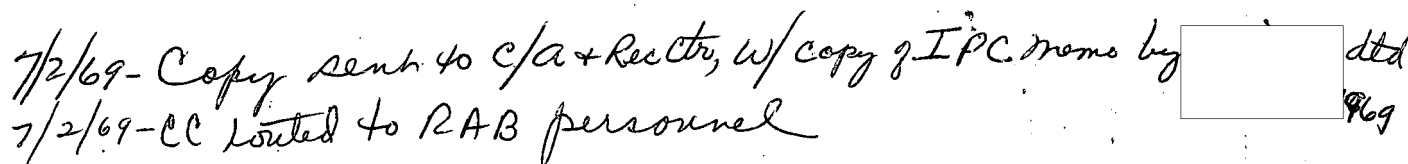 7/2/69 - Copy sent to C/A & Rec Ctr, w/ copy of IPC memo by dtd
7/2/69 - CC routed to RAB personnel 1969